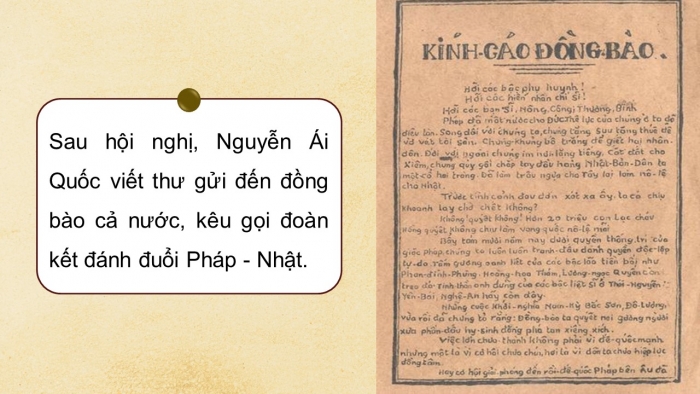 Sau hội nghị, Nguyễn Ái
Quốc viết thư gửi đến đồng
bào cả nước, kêu gọi đoàn
kết đánh đuổi Pháp - Nhật.
KÍNH-CÁO ĐỒNG-BÀO.
Hỡi các bậc phụ huynh!
Hỡi các hiền nhân chí sĩ!
Hỡi các bạn Sĩ, Nông, Công, Thương, Binh
Pháp đã mất nước cho Đức. Thế lực của chúng ở ta đã
điêu tàn. Song đối với chúng ta, chúng tăng sưu tăng thuế để
vơ vét tài sản. Chúng khủng bố trắng để giết hại nhân
dân. Đối với ngoài chúng im hơi lặng tiếng, Cắt đất cho
Xiêm, chúng quỳ gối chắp tay đầu hàng Nhật-Bản. Dân ta
một cổ hai tròng. Đã làm trâu ngựa cho Tây lại làm nô-lệ
cho Nhật.
Trước tình cảnh đau đớn xót xa ấy, ta có chịu
khoanh tay chờ chết không?
Không quyết không! Hơn 20 triệu con Lạc cháu
Hồng quyết không chịu làm vong quốc nô-lệ mãi!
Bảy tám mươi năm nay dưới quyền thống trị của
giặc pháp chúng ta luôn luôn tranh-đấu giành quyền độc-lập
tự-do. Tấm gương oanh liệt của các bậc lão tiền bối như
Phan-đình-Phùng, Hoàng-hoa Thám, Lương-ngọc Quyến còn
treo đó. Tinh-thần anh dũng của các bậc liệt sĩ ở Thái-Nguyên,
Yên-Bái, Nghệ-An hãy còn đây.
Những cuộc khởi-nghĩa Nam-Kỳ, Bắc Sơn, Đô-Lương,
vừa rồi đã chứng tỏ rằng: Đồng-bào ta quyết noi gương người
xưa phấn-đấu hy-sinh đặng phá tan xiềng xích.
Việc lớn chưa thành không phải vì đế-quốc mạnh
nhưng một là vì cơ hội chưa chín, hai là vì dân ta chưa hiệp lực
đồng tâm.
Nay cơ hội giải-phóng đến rồi. đế quốc Pháp bên Âu đã